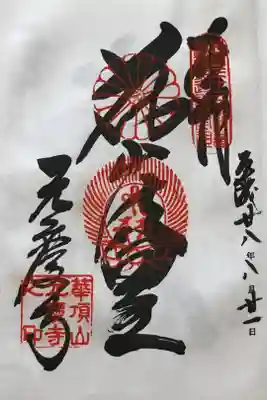 奉拝
平成廿八年八月廿一日
花山法皇
元慶寺
華頂山
元慶寺
之印